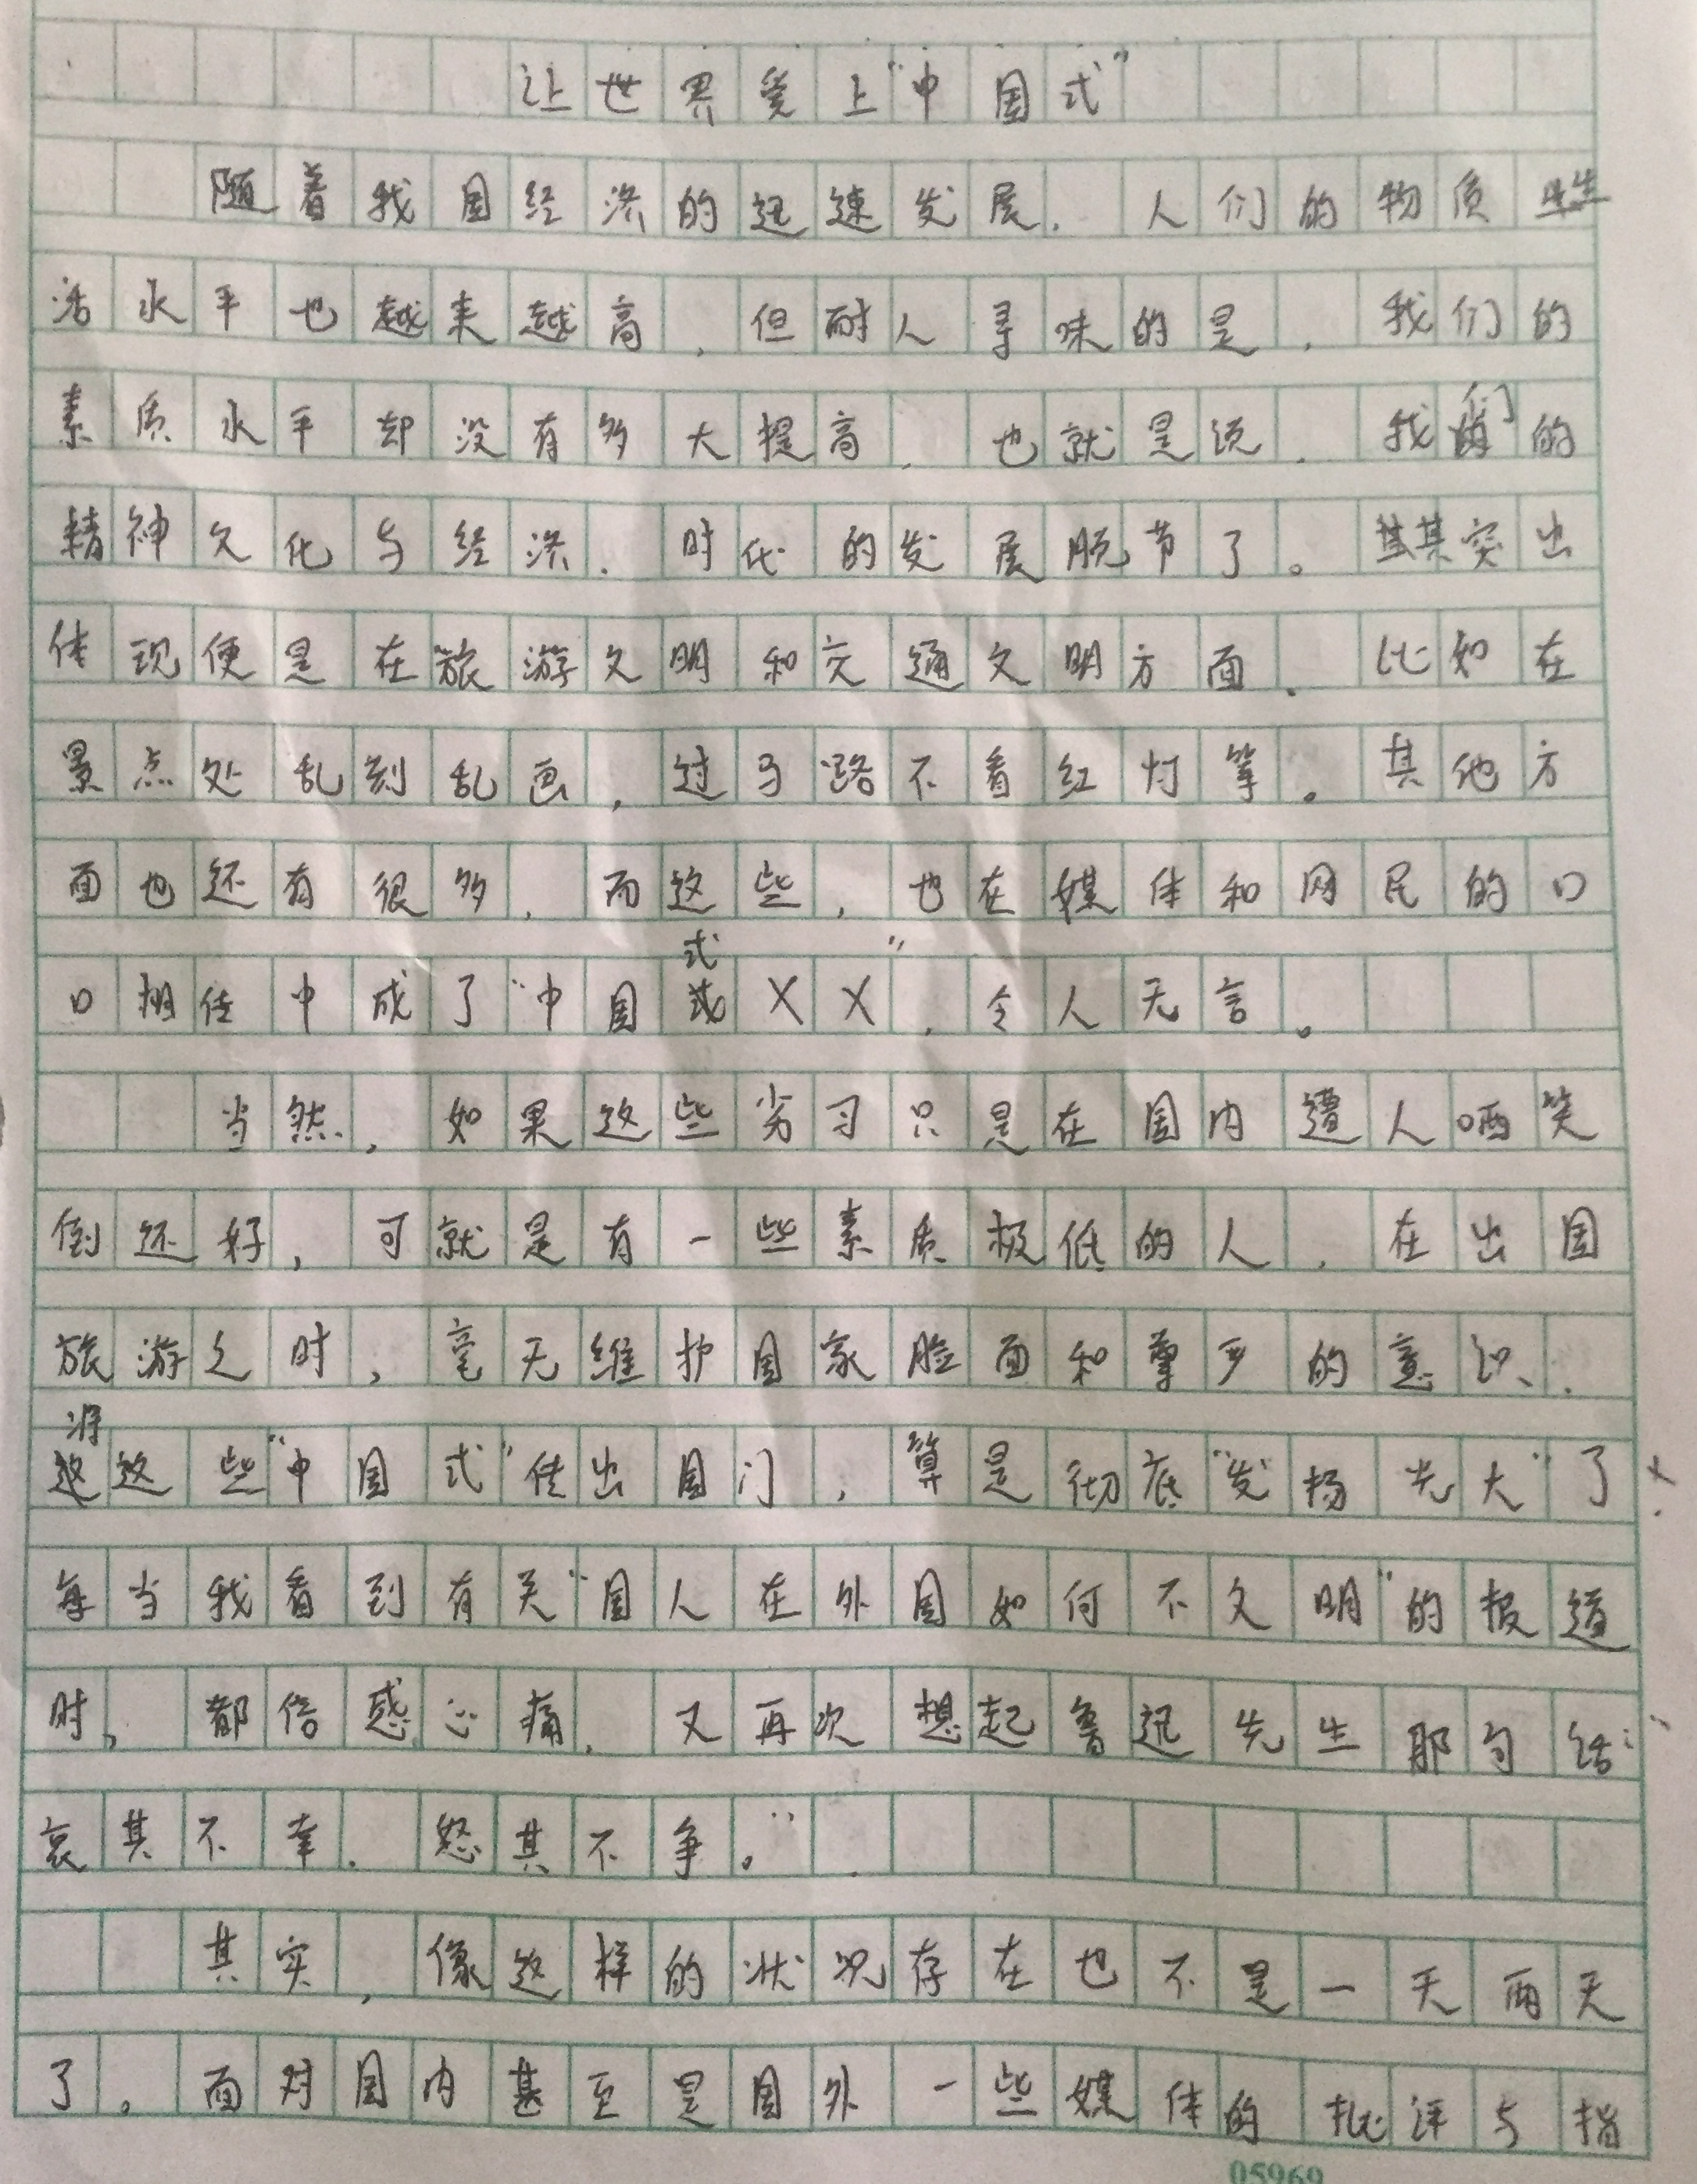 让世界爱上“中国式”
随着我国经济的迅速发展，人们的物质生
活水平也越来越高，但耐人寻味的是，我们的
素质水平却没有多大提高，也就是说，我们的
精神文化与经济、时代的发展脱节了。其突出
体现便是在旅游文明和交通文明方面，比如在
景点处乱刻乱画，过马路不看红灯等。其他方
面也还有很多，而这些，也在媒体和网民的口
口相传中成了“中国式XX”，令人无言。
当然，如果这些劣习只是在国内遭人哂笑
倒还好，可就是有一些素质极低的人，在出国
旅游之时，毫无维护国家脸面和尊严的意识，
将这些“中国式”传出国门，算是彻底“发扬光大”了。
每当我看到有关“国人在外国如何不文明”的报道
时，都倍感心痛，又再次想起鲁迅先生那句话：“
哀其不幸，怒其不争。”
其实，像这样的状况存在也不是一天两天
了。面对国内甚至是国外一些媒体的批评与指
05969